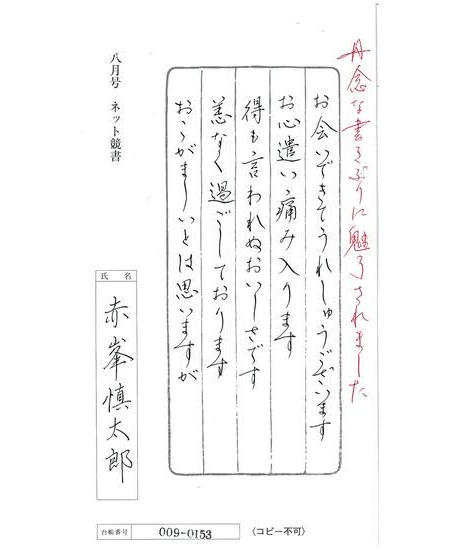 丹念な書きぶりに魅了されました
お会いできてうれしゅうございます
お心遣い痛み入ります
得も言われぬおいしさです
恙なく過ごしております
おこがましいとは思いますが
八月号 ネット競書
氏名
赤峯慎太郎
台帳番号
009-0153
〈コピー不可〉